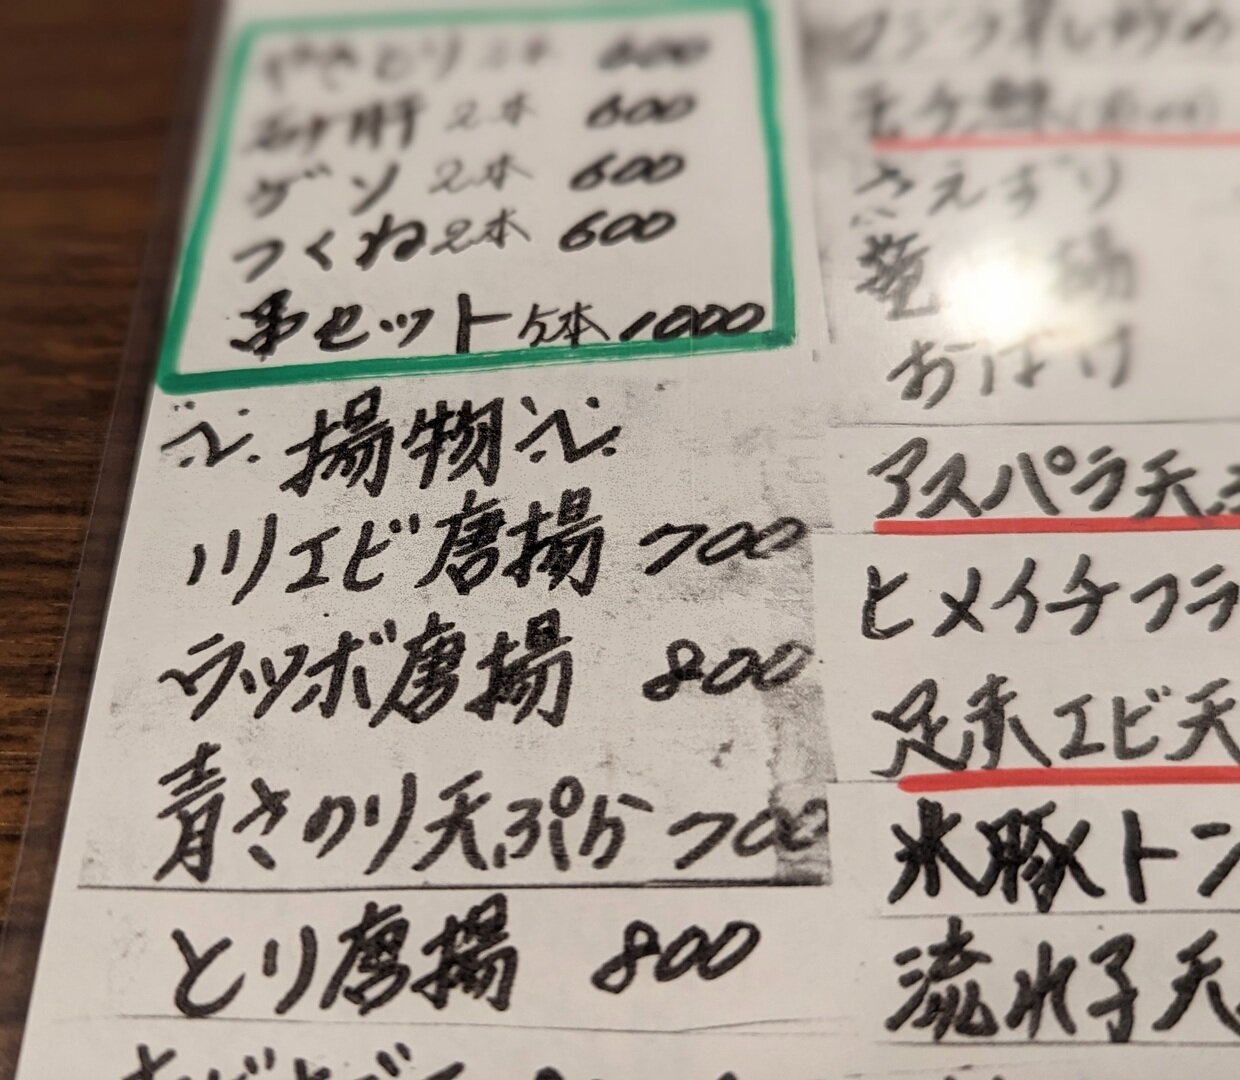 やきとり 2本 600
砂肝 2本 600
ゲソ 2本 600
つくね 2本 600
串セット 5本 1000
揚物
川エビ唐揚 700
ウツボ唐揚 800
青さのり天ぷら 700
とり唐揚 800
さえずり
おばけ
アスパラ天ぷ
ヒメイチフラ
足赤エビ天
米豚トン
流れ子天